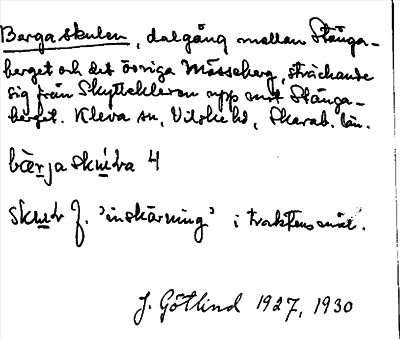 Bergaskulen, dalgång mellan Stånga-
berget och det övriga Mösseberg, sträckande
sig från upp mot Stånga-
berget. Kleva sn, Vilske hd, Skarab. län.
4
f. 'inskärning' i traktens mål.
J. Götlind 1927, 1930